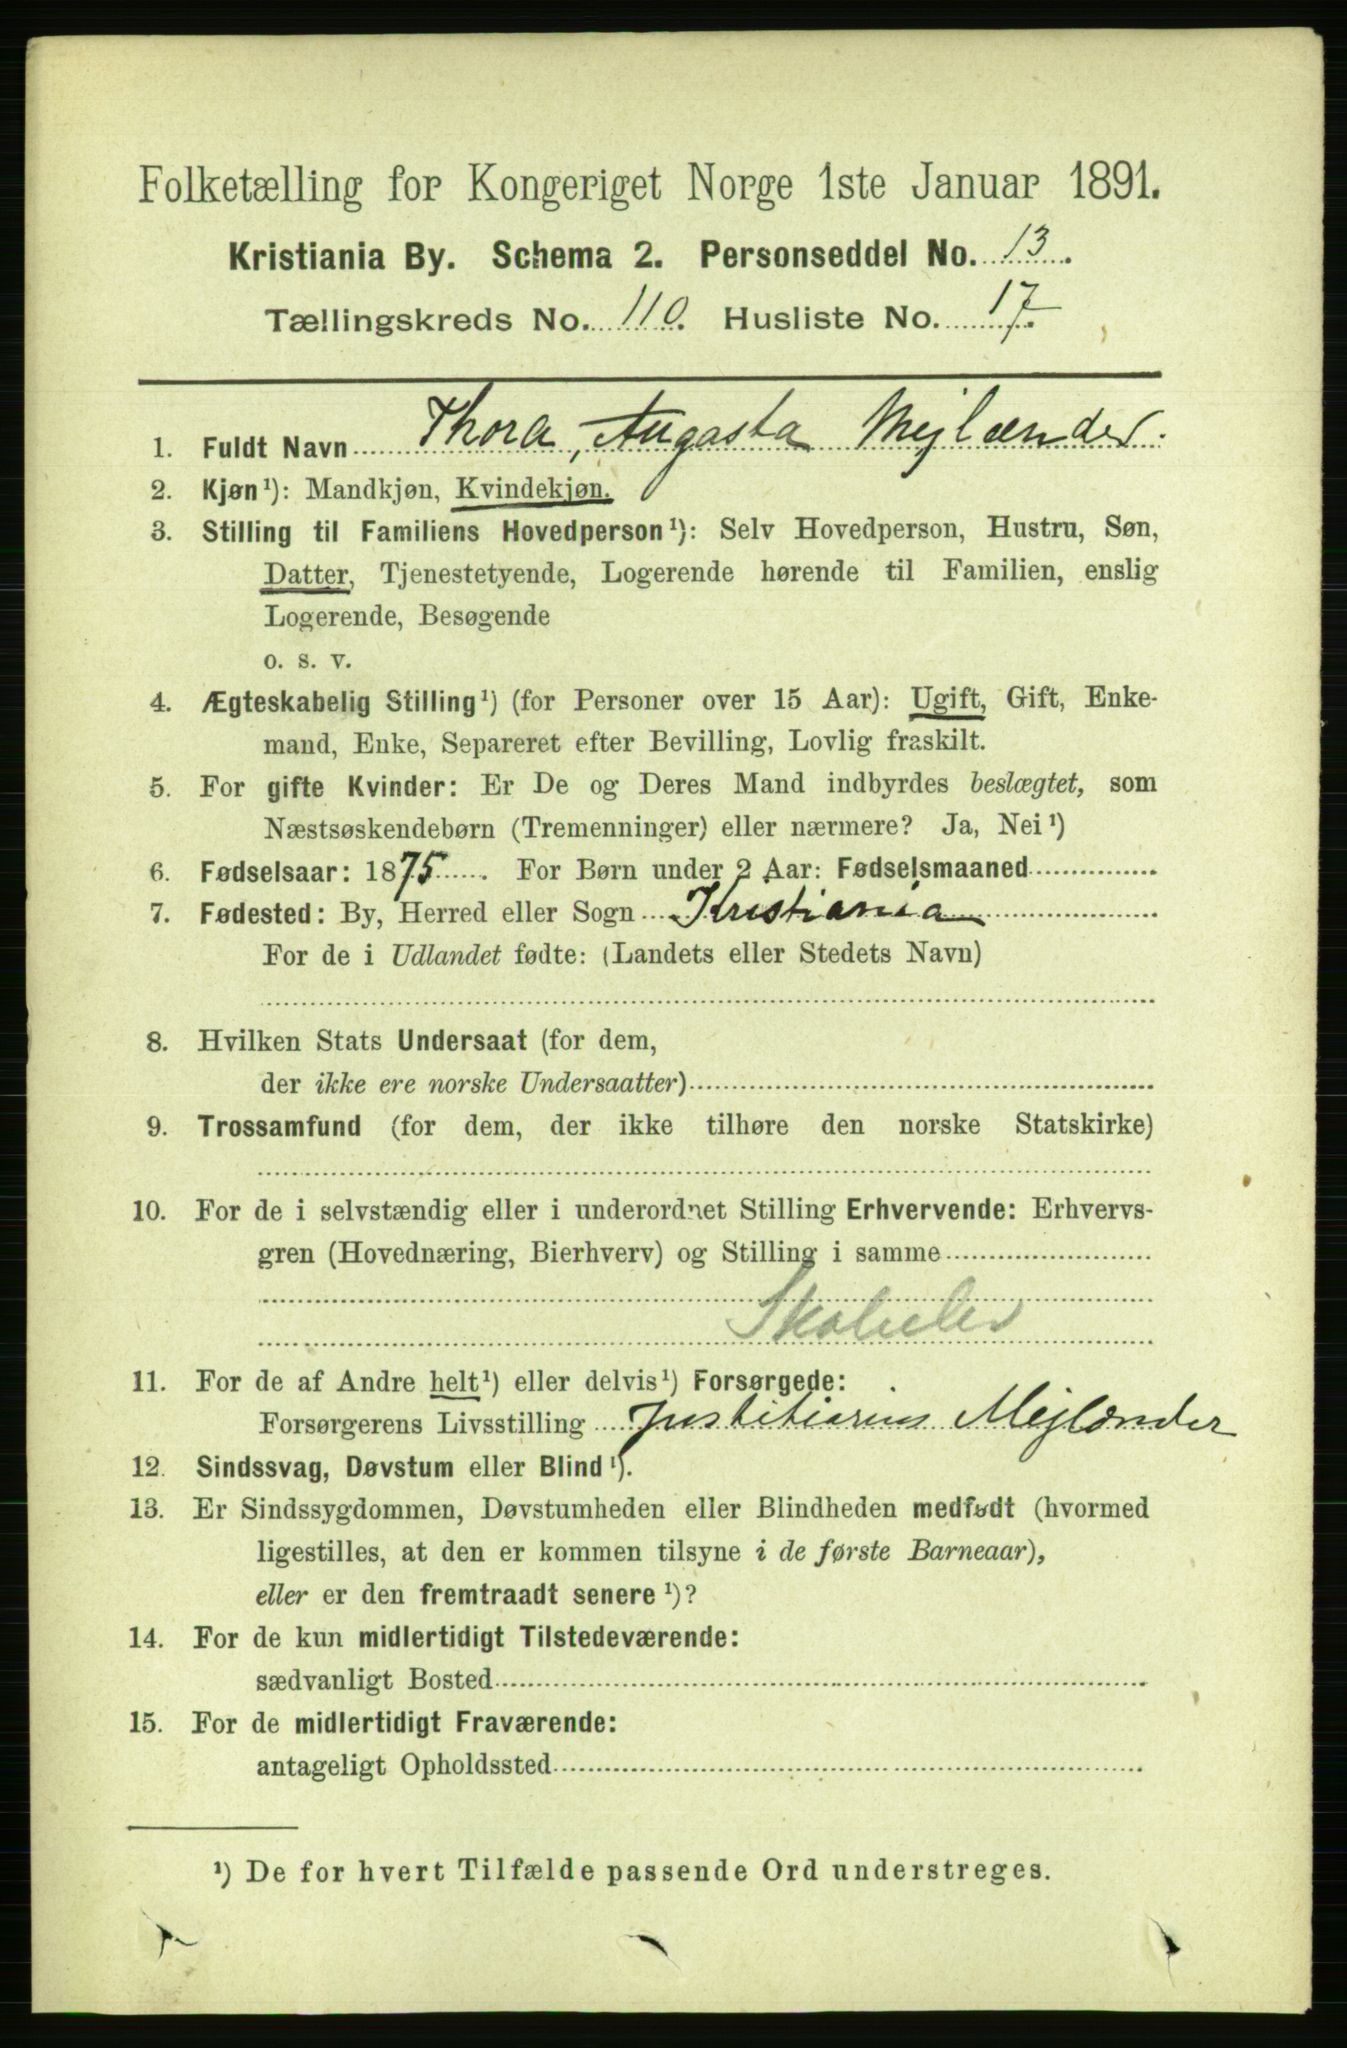 Folketælling for Kongeriget Norge 1ste Januar 1891.
Kristiania By. Schema 2. Personseddel No. 13.
Tællingskreds No. 110. Husliste No. 17.
1. Fuldt Navn Thora, Augasta Mejlænder.
2. Kjøn¹): Mandkjøn, Kvindekjøn.
3. Stilling til Familiens Hovedperson¹): Selv Hovedperson, Hustru, Søn,
Datter, Tjenestetyende, Logerende hørende til Familien, enslig
Logerende, Besøgende
o. s. v.
4. Ægteskabelig Stilling¹) (for Personer over 15 Aar): Ugift, Gift, Enke-
mand, Enke, Separeret efter Bevilling, Lovlig fraskilt.
5. For gifte Kvinder: Er De og Deres Mand indbyrdes beslægtet, som
Næstsøskendebørn (Tremenninger) eller nærmere? Ja, Nei¹)
6. Fødselsaar: 1875. For Børn under 2 Aar: Fødselsmaaned
7. Fødested: By, Herred eller Sogn Kristiania
For de i Udlandet fødte: (Landets eller Stedets Navn)
8. Hvilken Stats Undersaat (for dem,
der ikke ere norske Undersaatter)
9. Trossamfund (for dem, der ikke tilhøre den norske Statskirke)
10. For de i selvstændig eller i underordnet Stilling Erhvervende: Erhvervs-
gren (Hovednæring, Bierhverv) og Stilling i samme
Skoleelev
11. For de af Andre helt¹) eller delvis¹) Forsørgede:
Forsørgerens Livsstilling Justitiarius Mejlænder
12. Sindssvag, Døvstum eller Blind¹).
13. Er Sindssygdommen, Døvstumheden eller Blindheden medfødt (hvormed
ligestilles, at den er kommen tilsyne i de første Barneaar),
eller er den fremtraadt senere¹)?
14. For de kun midlertidigt Tilstedeværende:
sædvanligt Bosted
15. For de midlertidigt Fraværende:
antageligt Opholdssted
¹) De for hvert Tilfælde passende Ord understreges.